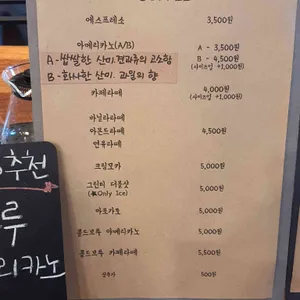 에스프레소 3,500원
아메리카노(A/B) A - 3,500원
A - 쌉쌀한 산미.견과류의 고소함 B - 4,500원
B - 화사한 산미. 과일의 향 (사이즈업 +1,000원)
카페라떼 4,000원
(사이즈업 +1,000원)
바닐라라떼
아몬드라떼 4,500원
연유라떼
크림모카 5,000원
그린티 더블샷 5,000원
(Only Ice)
아포가토 5,000원
콜드브루 아메리카노 5,000원
콜드브루 카페라떼 5,500원
샷추가 500원
추천
루
리카노